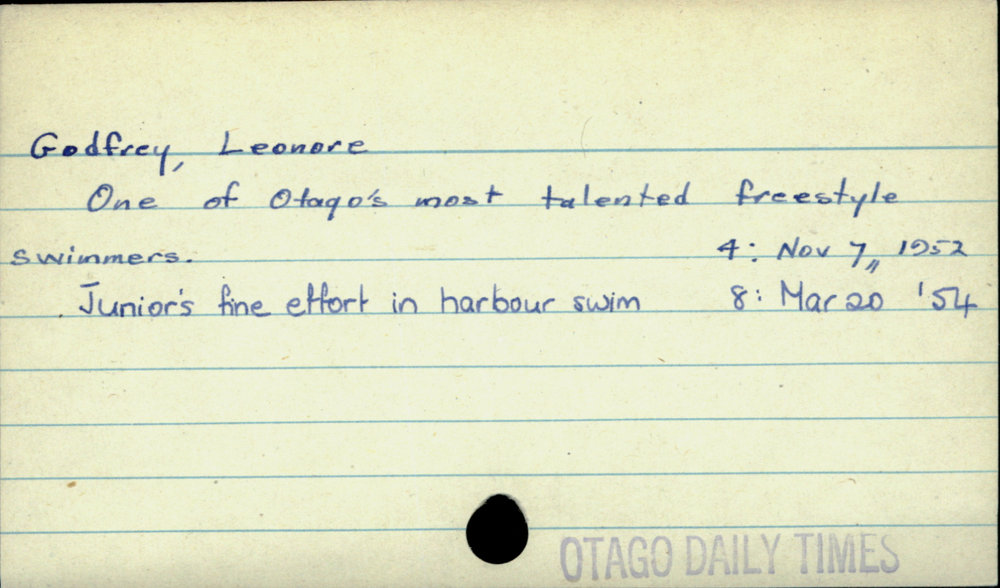 Godfrey, Leonore
One of Otago's most talented freestyle
swimmers. 4: Nov 7,, 1952
Junior's fine effort in harbour swim 8: Mar 20 '54
OTAGO DAILY TIMES